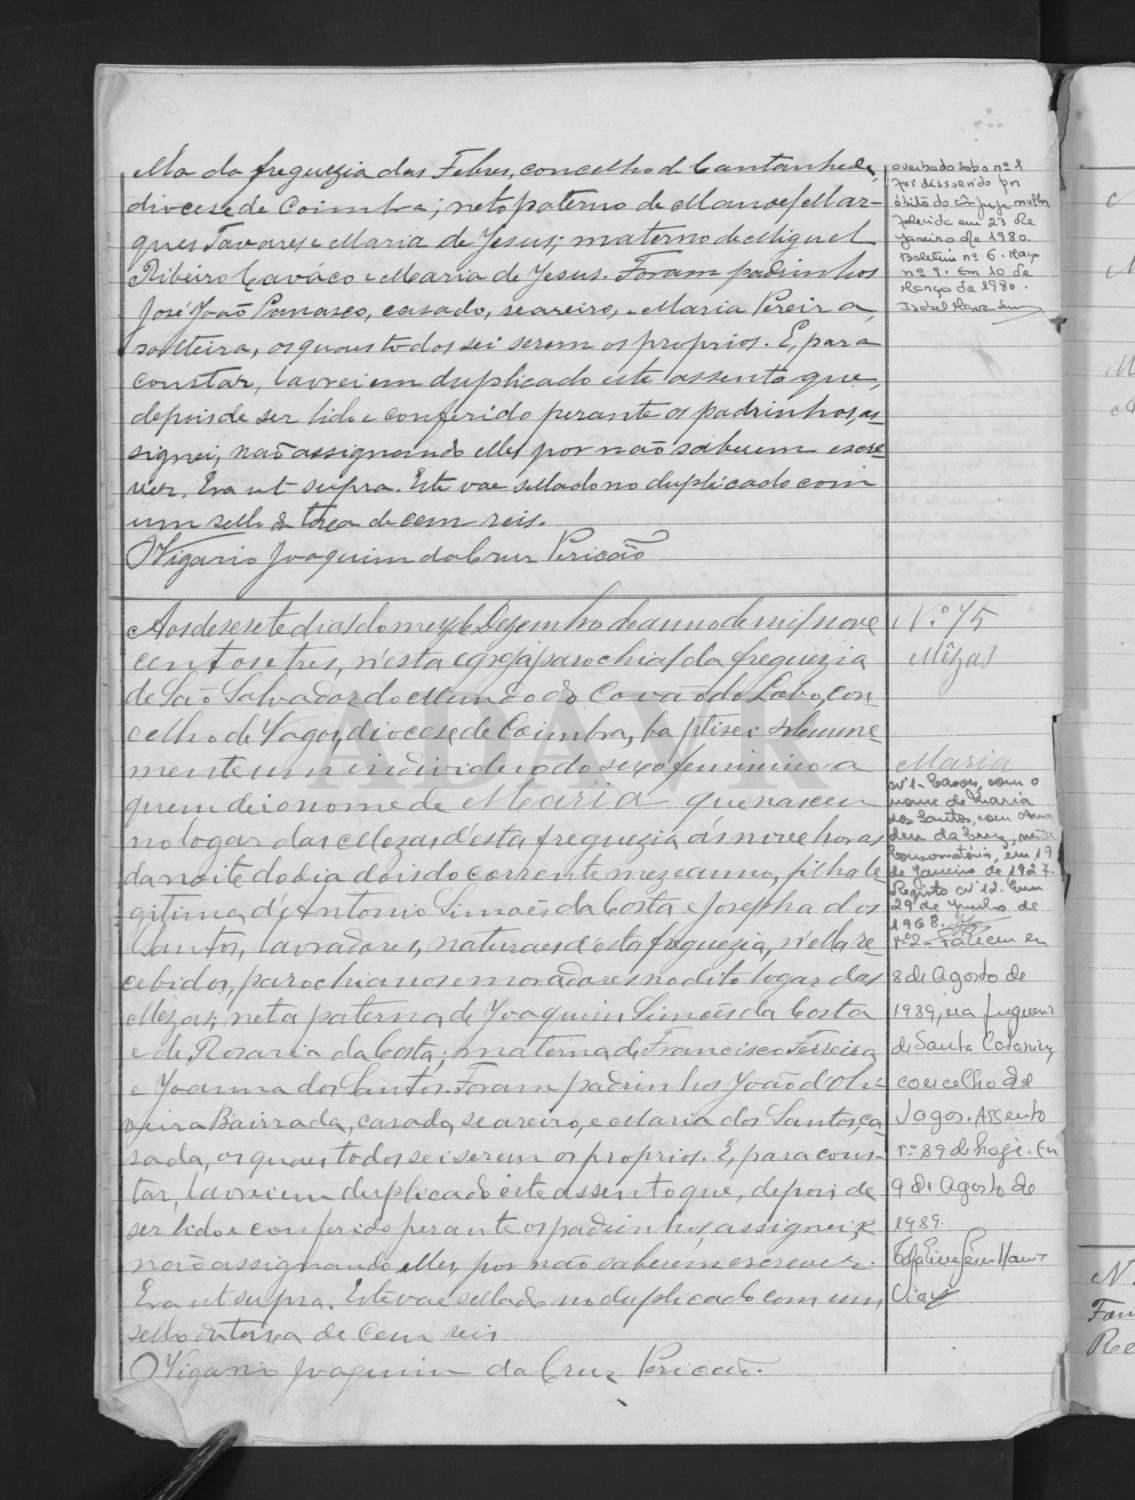 ella da freguezia das Febres, concelho de Cantanhede,
diocese de Coimbra; neto paterno de Manoel Mar-
ques Tavares e Maria de Jesus; materno de Miguel
Ribeiro Caváco e Maria de Jesus. Foram padrinhos
José João Panasco, casado, seareiro, e Maria Pereira,
solteira, os quaes todos sei serem os proprios. E, para
constar, lavrei em duplicado este assento que,
depois de ser lido e conferido perante os padrinhos, as
signei, não assignando elles por não saberem escre-
ver. Era ut supra. Este vae sellado no duplicado com
um sello da taxa de cem reis.
O Vigario Joaquim da Cruz Pericão
averbado sob o nº 1
foi dissolvido por
óbito do cônjuge mulher
falecida em 23 de
Janeiro de 1980.
Boletim nº 6. Março
nº 9. Em 10 de
Março de 1980.
Aos desesete dias do mez de Dezembro de anno de mil nove
centos e tres, n'esta egreja parochial da freguezia
de São Salvador do Mundo do Covão do Lobo, con
celho de Vagos, diocese de Coimbra, baptisei solemne-
mente um individuo do sexo feminino a
quem dei o nome de Maria que nasceu
no logar das Mezas d'esta freguezia ás nove horas
da noite do dia dois do corrente mez e anno, filha le-
gitima d'Antonio Simões da Costa e Josepha dos
Santos, lavradores, naturaes d'esta freguezia, n'ella re-
cebidos, parochianos e moradores no dito logar das
Mezas; neta paterna, de Joaquim Simões da Costa
e de Rosaria da Costa; materna de Francisco Ferreira
e Joanna dos Santos. Foram padrinhos João d'Oli-
veira Bairrada, casado, seareiro, e Maria dos Santos, ca-
sada, os quaes todos sei serem os proprios. E, para cons-
tar, lavrei em duplicado este assento que, depois de
ser lido e conferido perante os padrinhos, assignei,
não assignando elles, por não saberem escrever.
Era ut supra. Este vae sellado no duplicado com um
sello da taxa de cem reis
O Vigario Joaquim da Cruz Pericão.
N.º 75
Mêzas
Maria
Nº 1- Casou, com o
nome de Maria
dos Santos, com
da Cruz, nesta
Conservatória, em 19
de Janeiro de 1927.
Registo nº 12. Em
29 de Junho de
1968.
Nº 2- Faleceu em
8 de Agosto de
1989, na freguesia
de Santa Catarina,
concelho de
Vagos. Assento
nº 89 de hoje. Em
9 de Agosto de
1989.
ADAVR
N.
Fam
Re